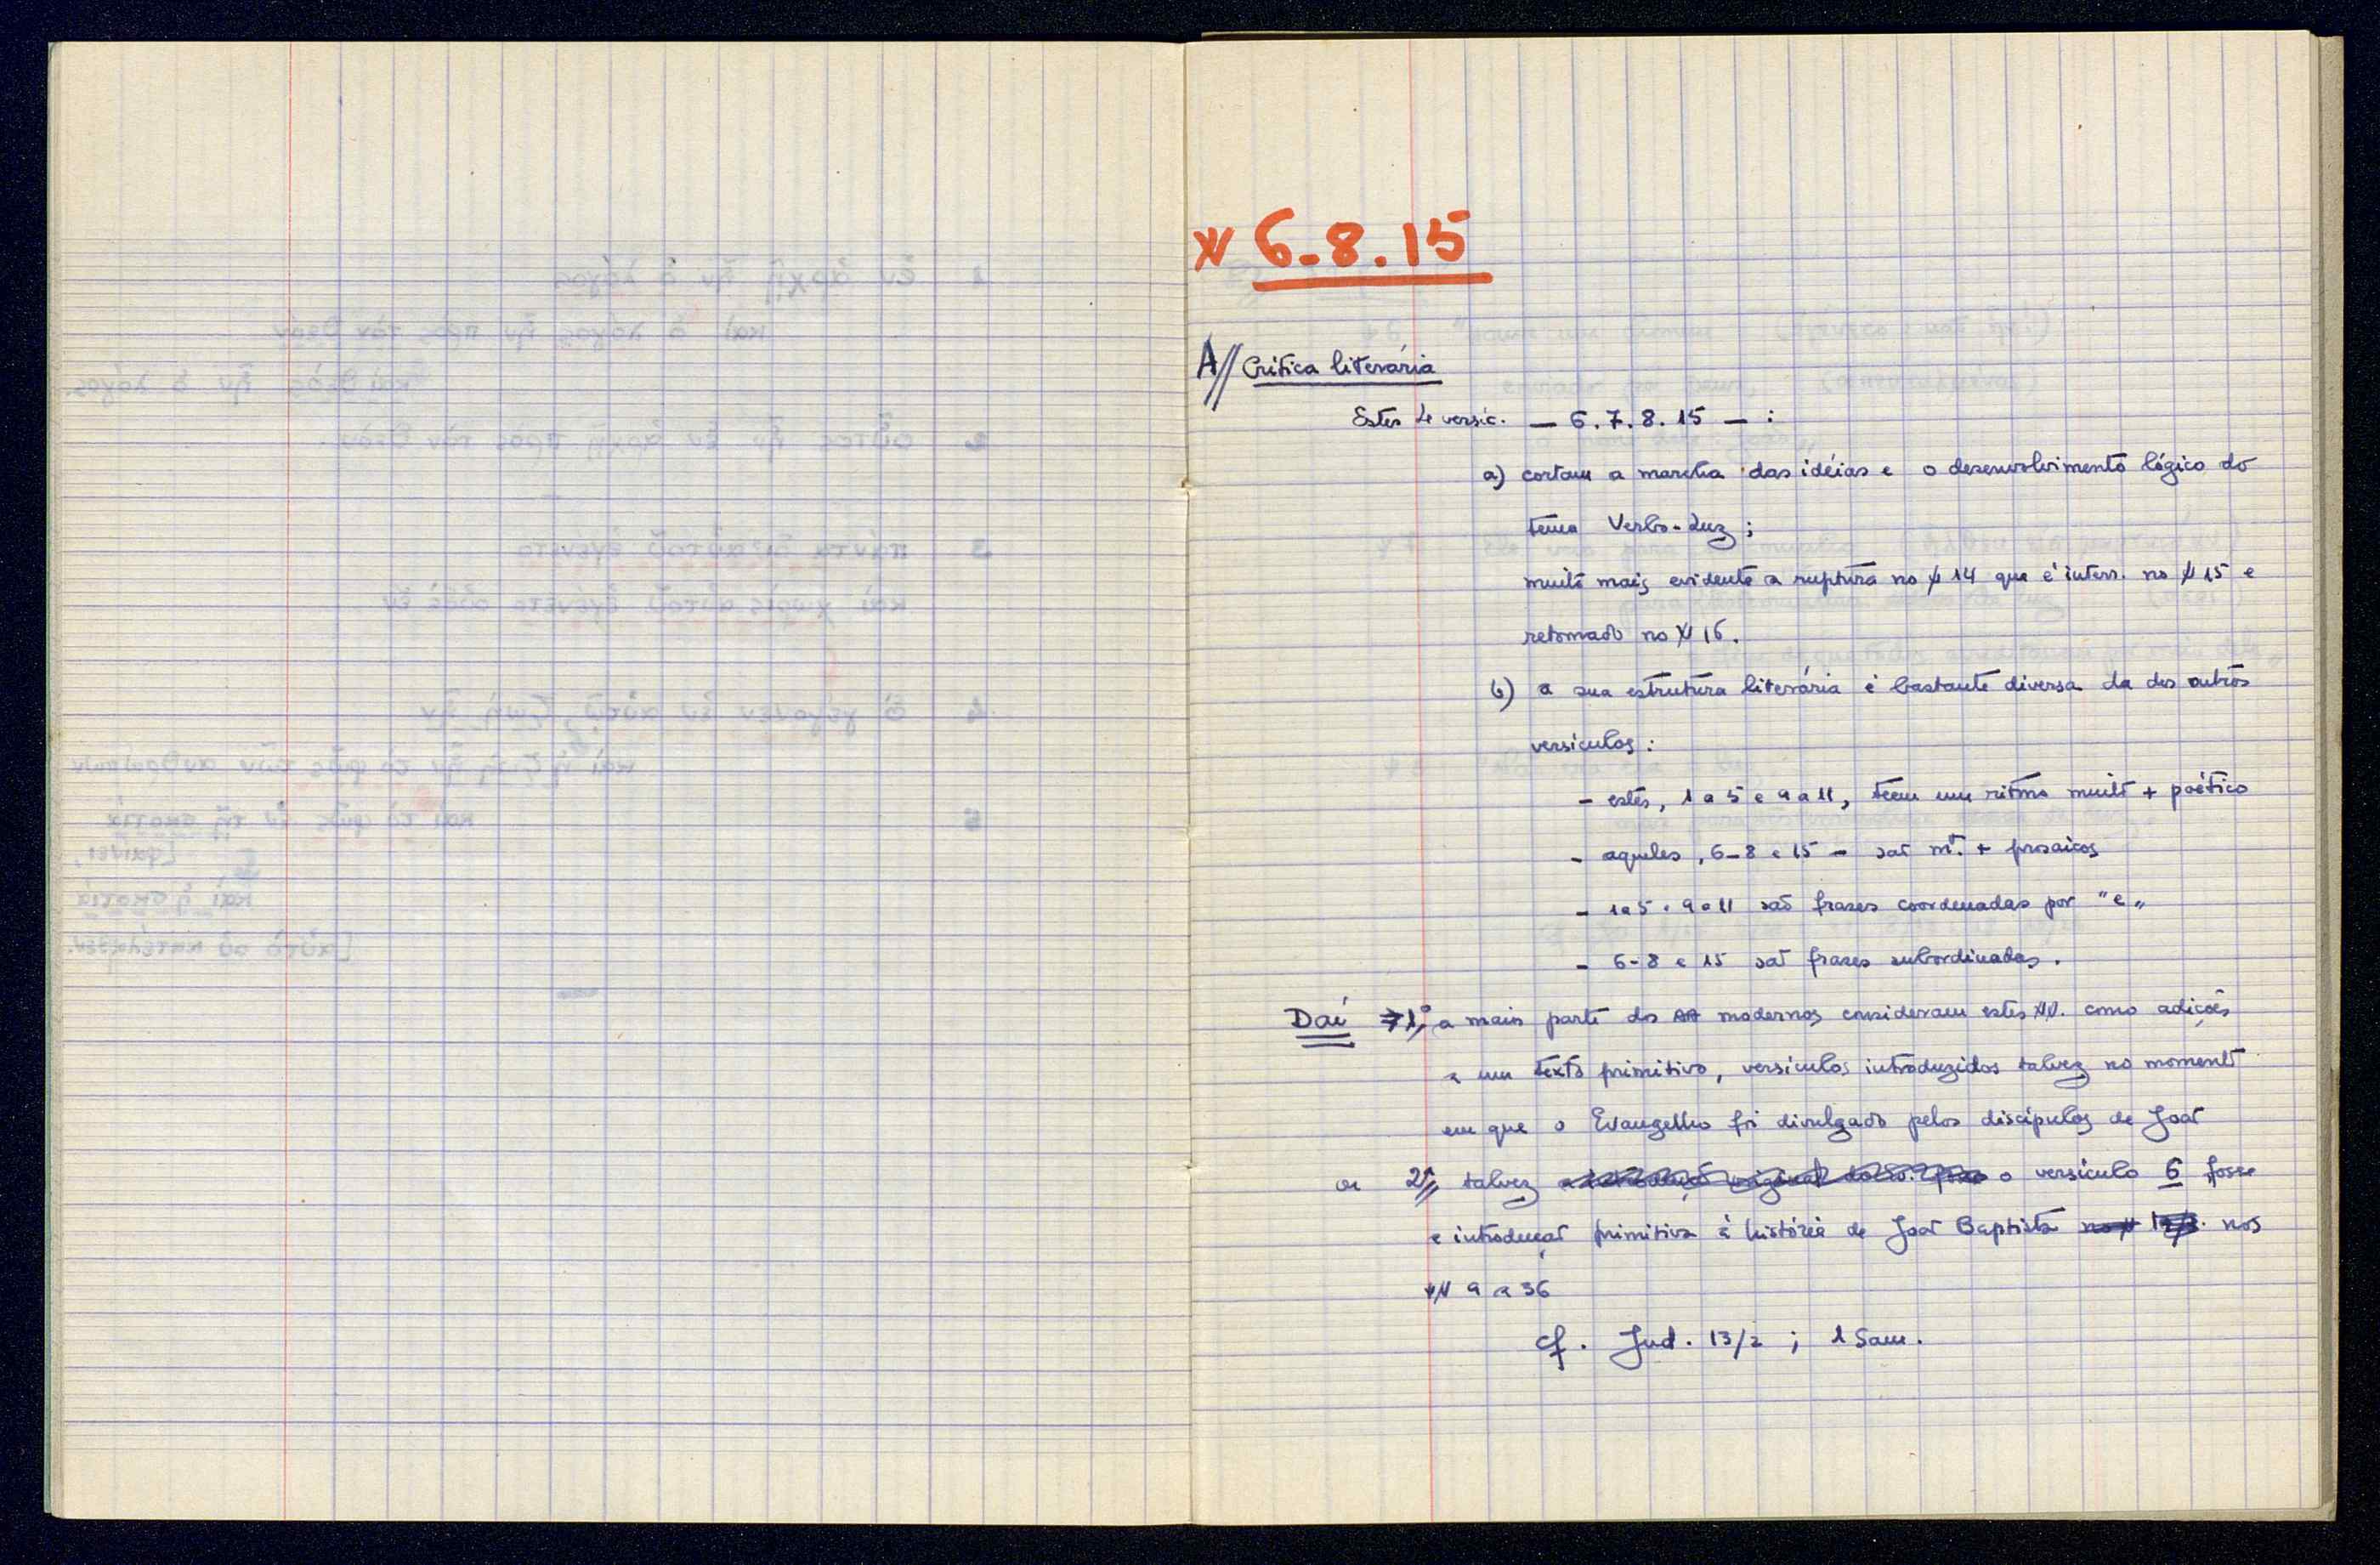 ℣ 6-8.15
A// Crítica literária
Estes 4 versíc. — 6.7.8.15 — :
a) cortam a marcha das idéias e o desenvolvimento lógico do
tema Verbo-Luz ;
muito mais evidente a ruptura no ℣ 14 que é interr. no ℣ 15 e
retomado no ℣ 16.
b) a sua estrutura literária é bastante diversa da dos outros
versículos :
- estes, 1 a 5 e 9 a 11, teem um ritmo muito + poético
- aqueles, 6-8 e 15 - são mto. + prosaicos
- 1 a 5 e 9 a 11 são frases coordenadas por "e"
- 6-8 e 15 são frases subordinadas.
Daí 1º, a mais parte dos AA modernos consideram estes ℣℣. como adições
a um texto primitivo, versículos introduzidos talvez no momento
em que o Evangelho foi divulgado pelos discípulos de João
ou 2º// talvez o versículo 6 fosse
a introdução primitiva à história de João Baptista nos
℣℣ 9 a 36
cf. Jud. 13/2 ; 1 Sam.